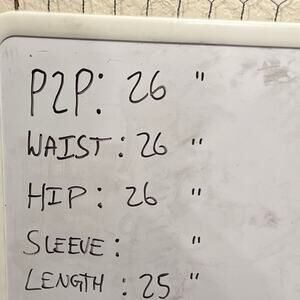 P2P: 26 "
WAIST: 26 "
HIP: 26 "
SLEEVE: "
LENGTH: 25 "